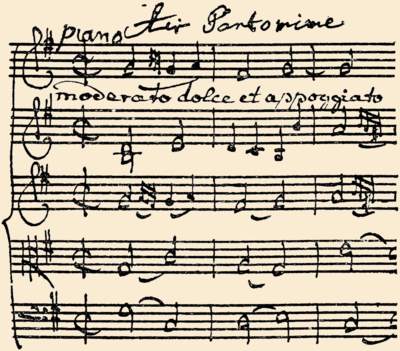 piano Air Pantomime
moderato dolce et appoggiato